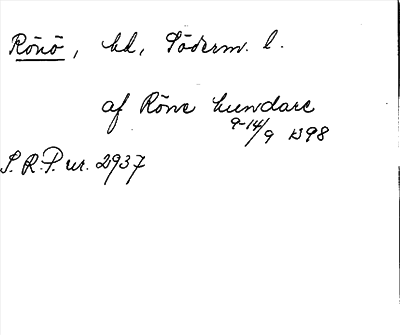 Rönö, hd, Söderm. l.
af Röne hundare
9-14/9 1398
S.R.P. nr. 2937